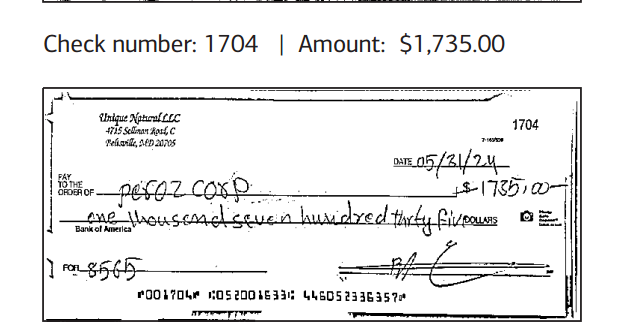 Check number: 1704 | Amount: $1,735.00
Unique Natural LLC
4715 Sellman Road, C
1704
DATE 05/31/24
PAY
TO THE
ORDER OF peroz corp $ 1735,00
one thousand seven hundred thirty five DOLLARS
Bank of America
FOR 8565
⑈001704⑈ ⑆052001633⑆ 446052336357⑈